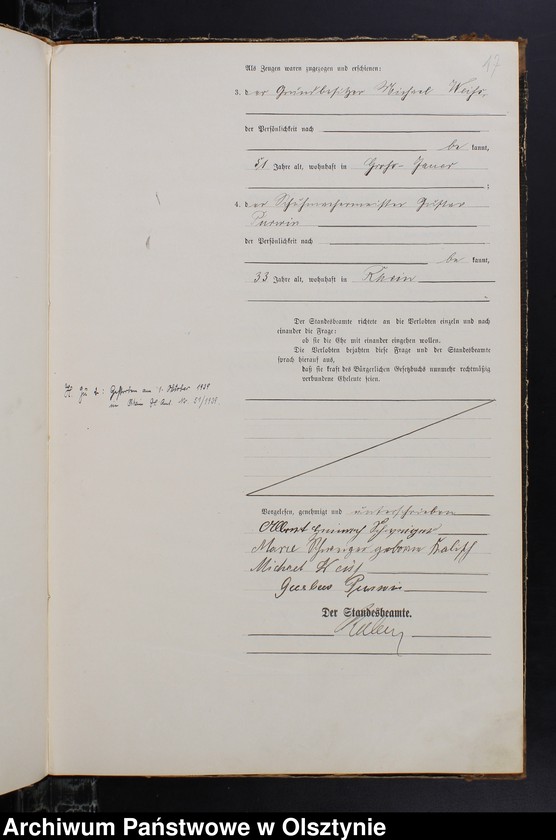 17
Als Zeugen waren zugezogen und erschienen:
3. der Grundbesitzer Michael Weiß,
der Persönlichkeit nach
be kannt,
51 Jahre alt, wohnhaft in Groß-Jauer
;
4. der Schuhmachermeister Gustav
Purwin
der Persönlichkeit nach
be kannt,
33 Jahre alt, wohnhaft in Rhein
.
Der Standesbeamte richtete an die Verlobten einzeln und nach
einander die Frage:
ob sie die Ehe mit einander eingehen wollen.
Die Verlobten bejahten diese Frage und der Standesbeamte
sprach hierauf aus,
daß sie kraft des Bürgerlichen Gesetzbuchs nunmehr rechtmäßig
verbundene Eheleute seien.
zu 2: Gestorben am 1. Oktober 1931
Rhein Nr. 51/1931.
Vorgelesen, genehmigt und unterschrieben
Albert Heinrich
Marie geboren
Michael Weiß
Gustav Purwin
Der Standesbeamte.
Archiwum Państwowe w Olsztynie